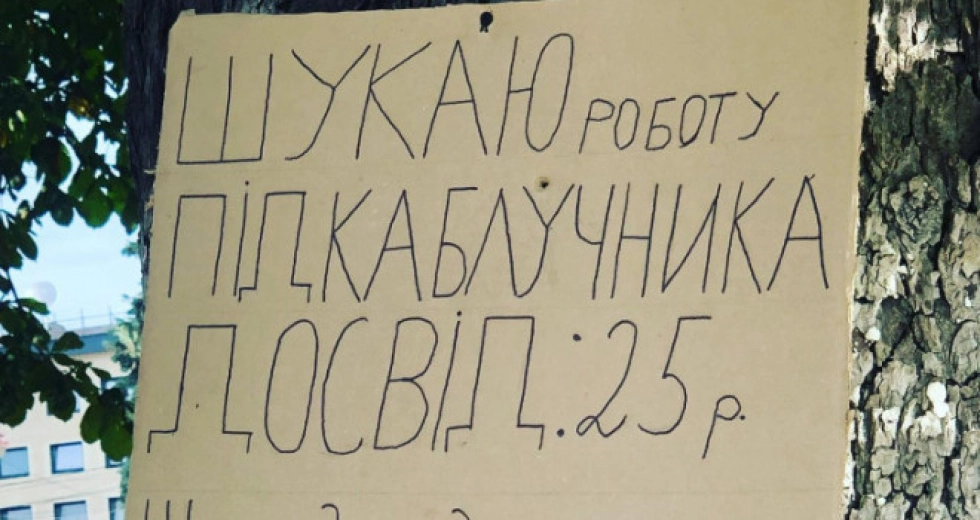 ШУКАЮ РОБОТУ
ПІДКАБЛУЧНИКА
ДОСВІД:25 р.